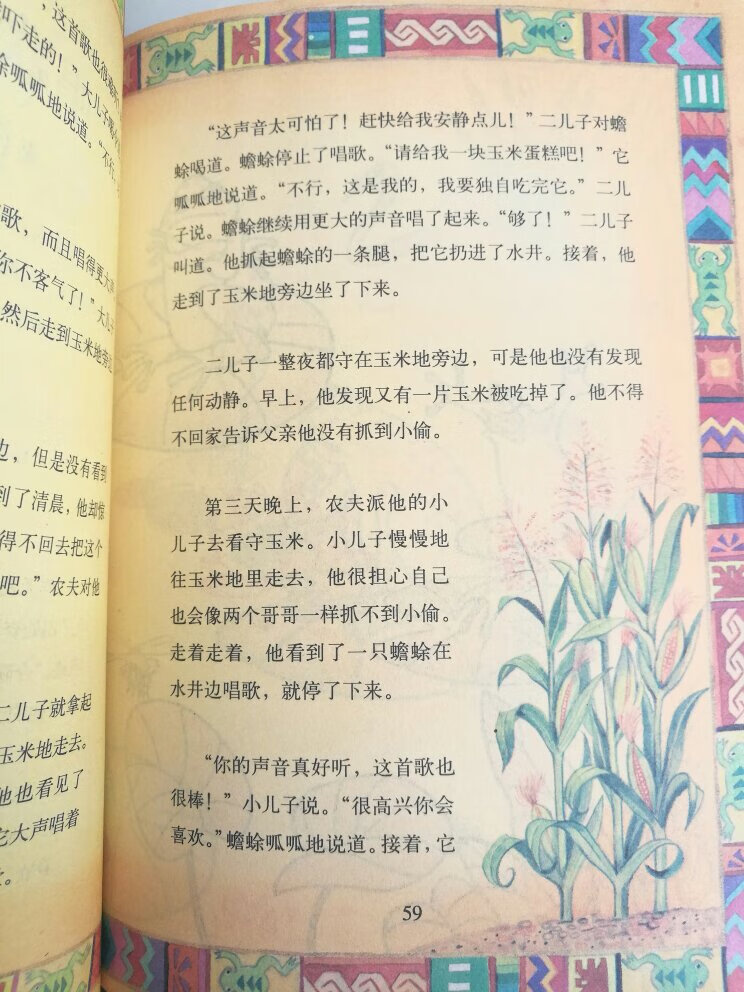 ，这首歌也很
吓走的！”大儿子
蜍呱呱地说道。“不行，
歌，而且唱得更大
你不客气了！”大儿子
然后走到玉米地旁边
边，但是没有看到
到了清晨，他却惊
得不回去把这个
吧。”农夫对他
二儿子就拿起
玉米地走去。
他也看见了
它大声唱着
。
“这声音太可怕了！赶快给我安静点儿！”二儿子对蟾
蜍喝道。蟾蜍停止了唱歌。“请给我一块玉米蛋糕吧！”它
呱呱地说道。“不行，这是我的，我要独自吃完它。”二儿
子说。蟾蜍继续用更大的声音唱了起来。“够了！”二儿子
叫道。他抓起蟾蜍的一条腿，把它扔进了水井。接着，他
走到了玉米地旁边坐了下来。
二儿子一整夜都守在玉米地旁边，可是他也没有发现
任何动静。早上，他发现又有一片玉米被吃掉了。他不得
不回家告诉父亲他没有抓到小偷。
第三天晚上，农夫派他的小
儿子去看守玉米。小儿子慢慢地
往玉米地里走去，他很担心自己
也会像两个哥哥一样抓不到小偷。
走着走着，他看到了一只蟾蜍在
水井边唱歌，就停了下来。
“你的声音真好听，这首歌也
很棒！”小儿子说。“很高兴你会
喜欢。”蟾蜍呱呱地说道。接着，它
59